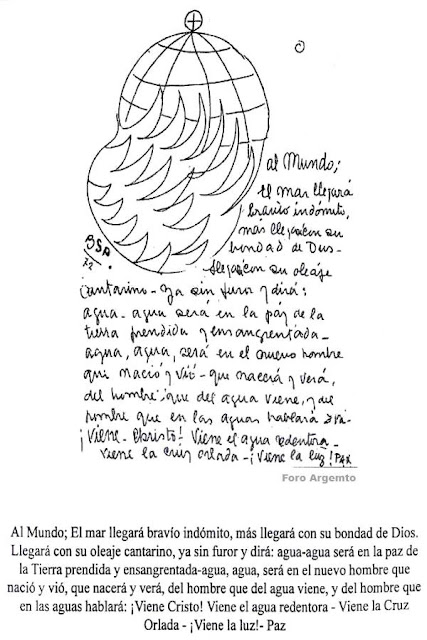 al Mundo;
El mar llegará
bravío indómito,
más llegará con su
bondad de Dios-
llegará con su oleaje
cantarino- ya sin furor y dirá:
agua- agua será en la paz de la
tierra prendida y ensangrentada-
agua, agua, será en el nuevo hombre
que nació y vió- que nacerá y verá,
del hombre que del agua viene, y del
hombre que en las aguas hablará
¡Viene Christo! Viene el agua redentora-
viene la cruz orlada- ¡Viene la luz! PAX
BSP
72
Foro Argemto
Al Mundo; El mar llegará bravío indómito, más llegará con su bondad de Dios.
Llegará con su oleaje cantarino, ya sin furor y dirá: agua-agua será en la paz de
la Tierra prendida y ensangrentada-agua, agua, será en el nuevo hombre que
nació y vió, que nacerá y verá, del hombre que del agua viene, y del hombre que
en las aguas hablará: ¡Viene Cristo! Viene el agua redentora - Viene la Cruz
Orlada - ¡Viene la luz!- Paz